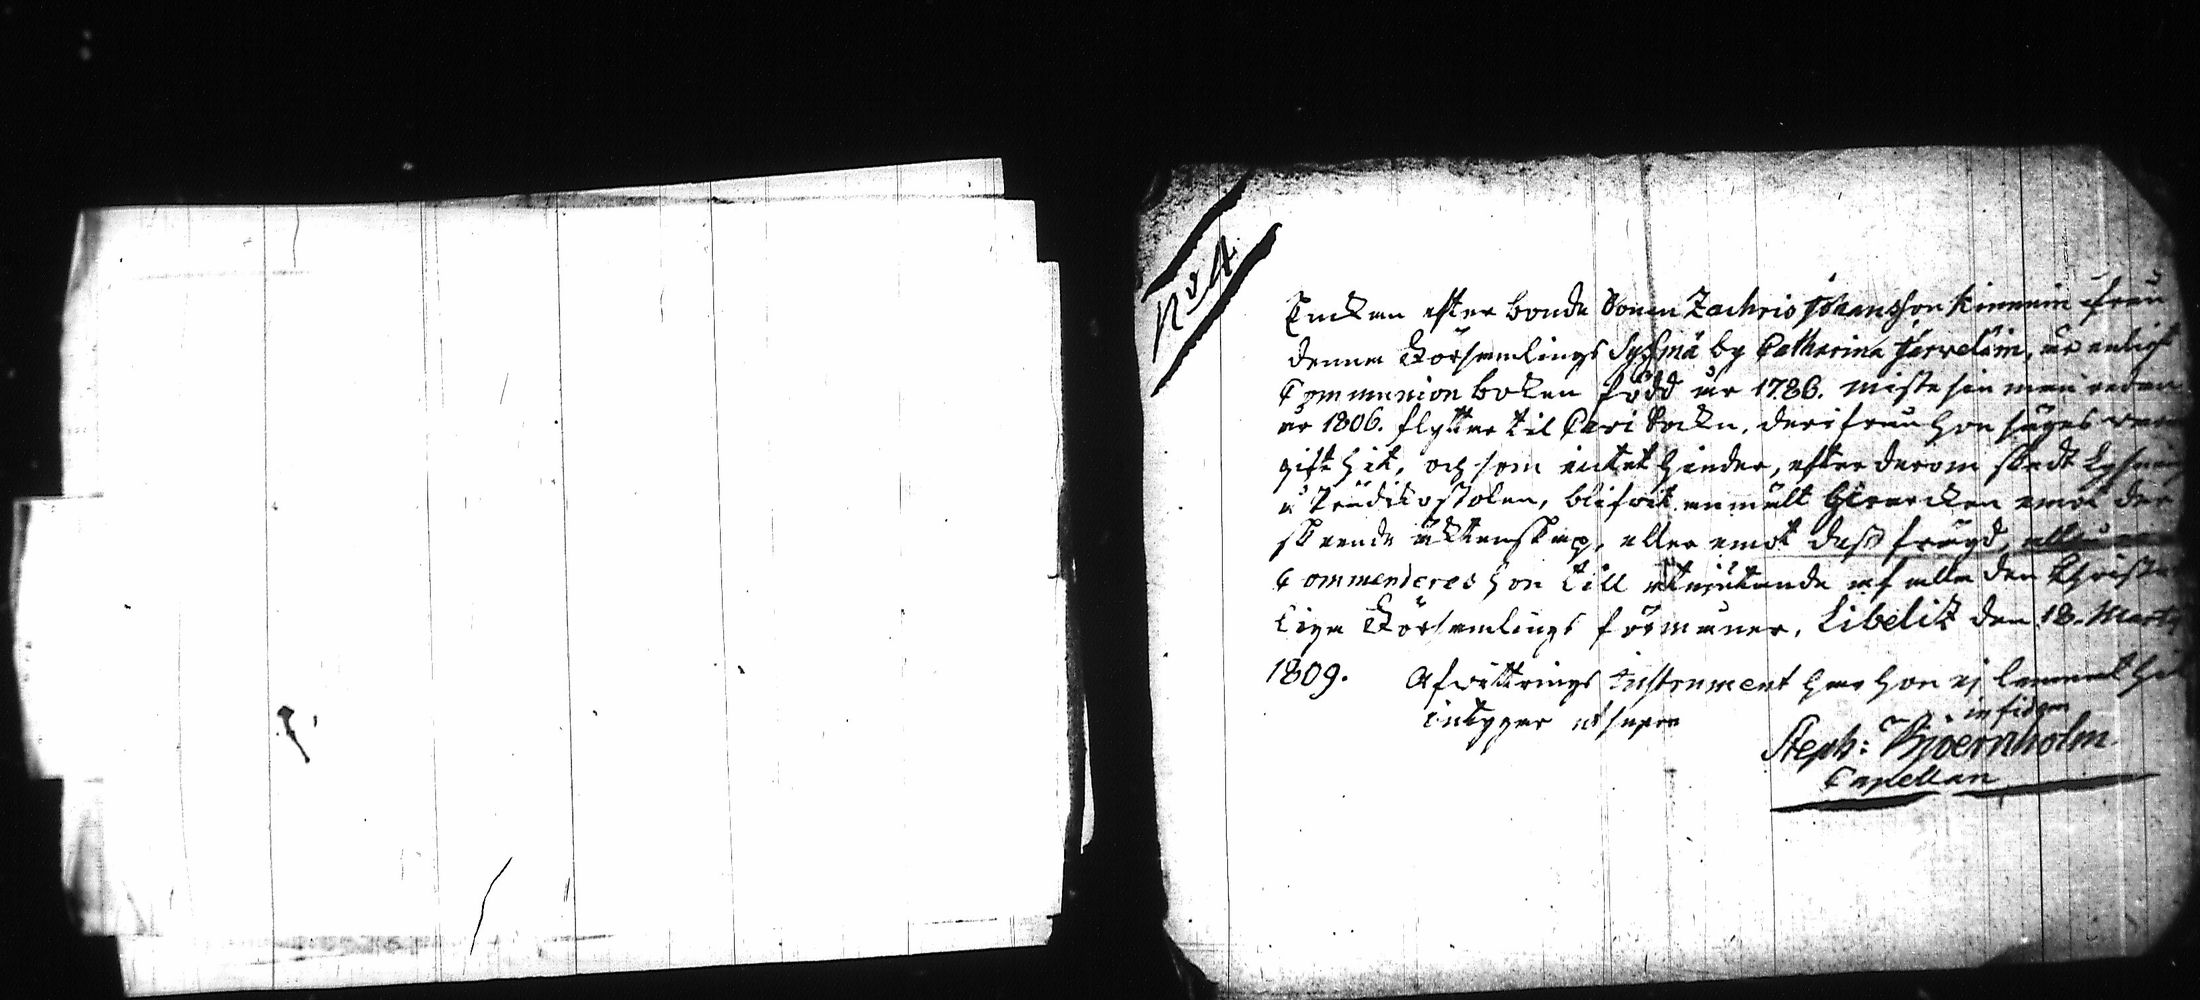 No 4.
Enckan efter bonde Sonen Zachris Johansson Kinnuin från
denna Församlings Sysmä by Catharina Tarveläin, är enligt
Communion boken född år 1786. miste sin man redan
år 1806. flyttar til Sockn, derifrån hon säges wara
gift hit, och som intet hinder, efter derom skedt Lysning
i Prädikostolen, blifvit anmält hvarcken emot det
skeende äktenskap, eller emot dess frägd,
Commenderas hon till åtnjutande af alla den Christe-
liga Församlings förmåner. Libelitz den 18. Martii
1809. Afvittrings Instrument har hon ej lemnat hit
intygar ut supra
in fidem
Steph: Bjoernholm
Capellan